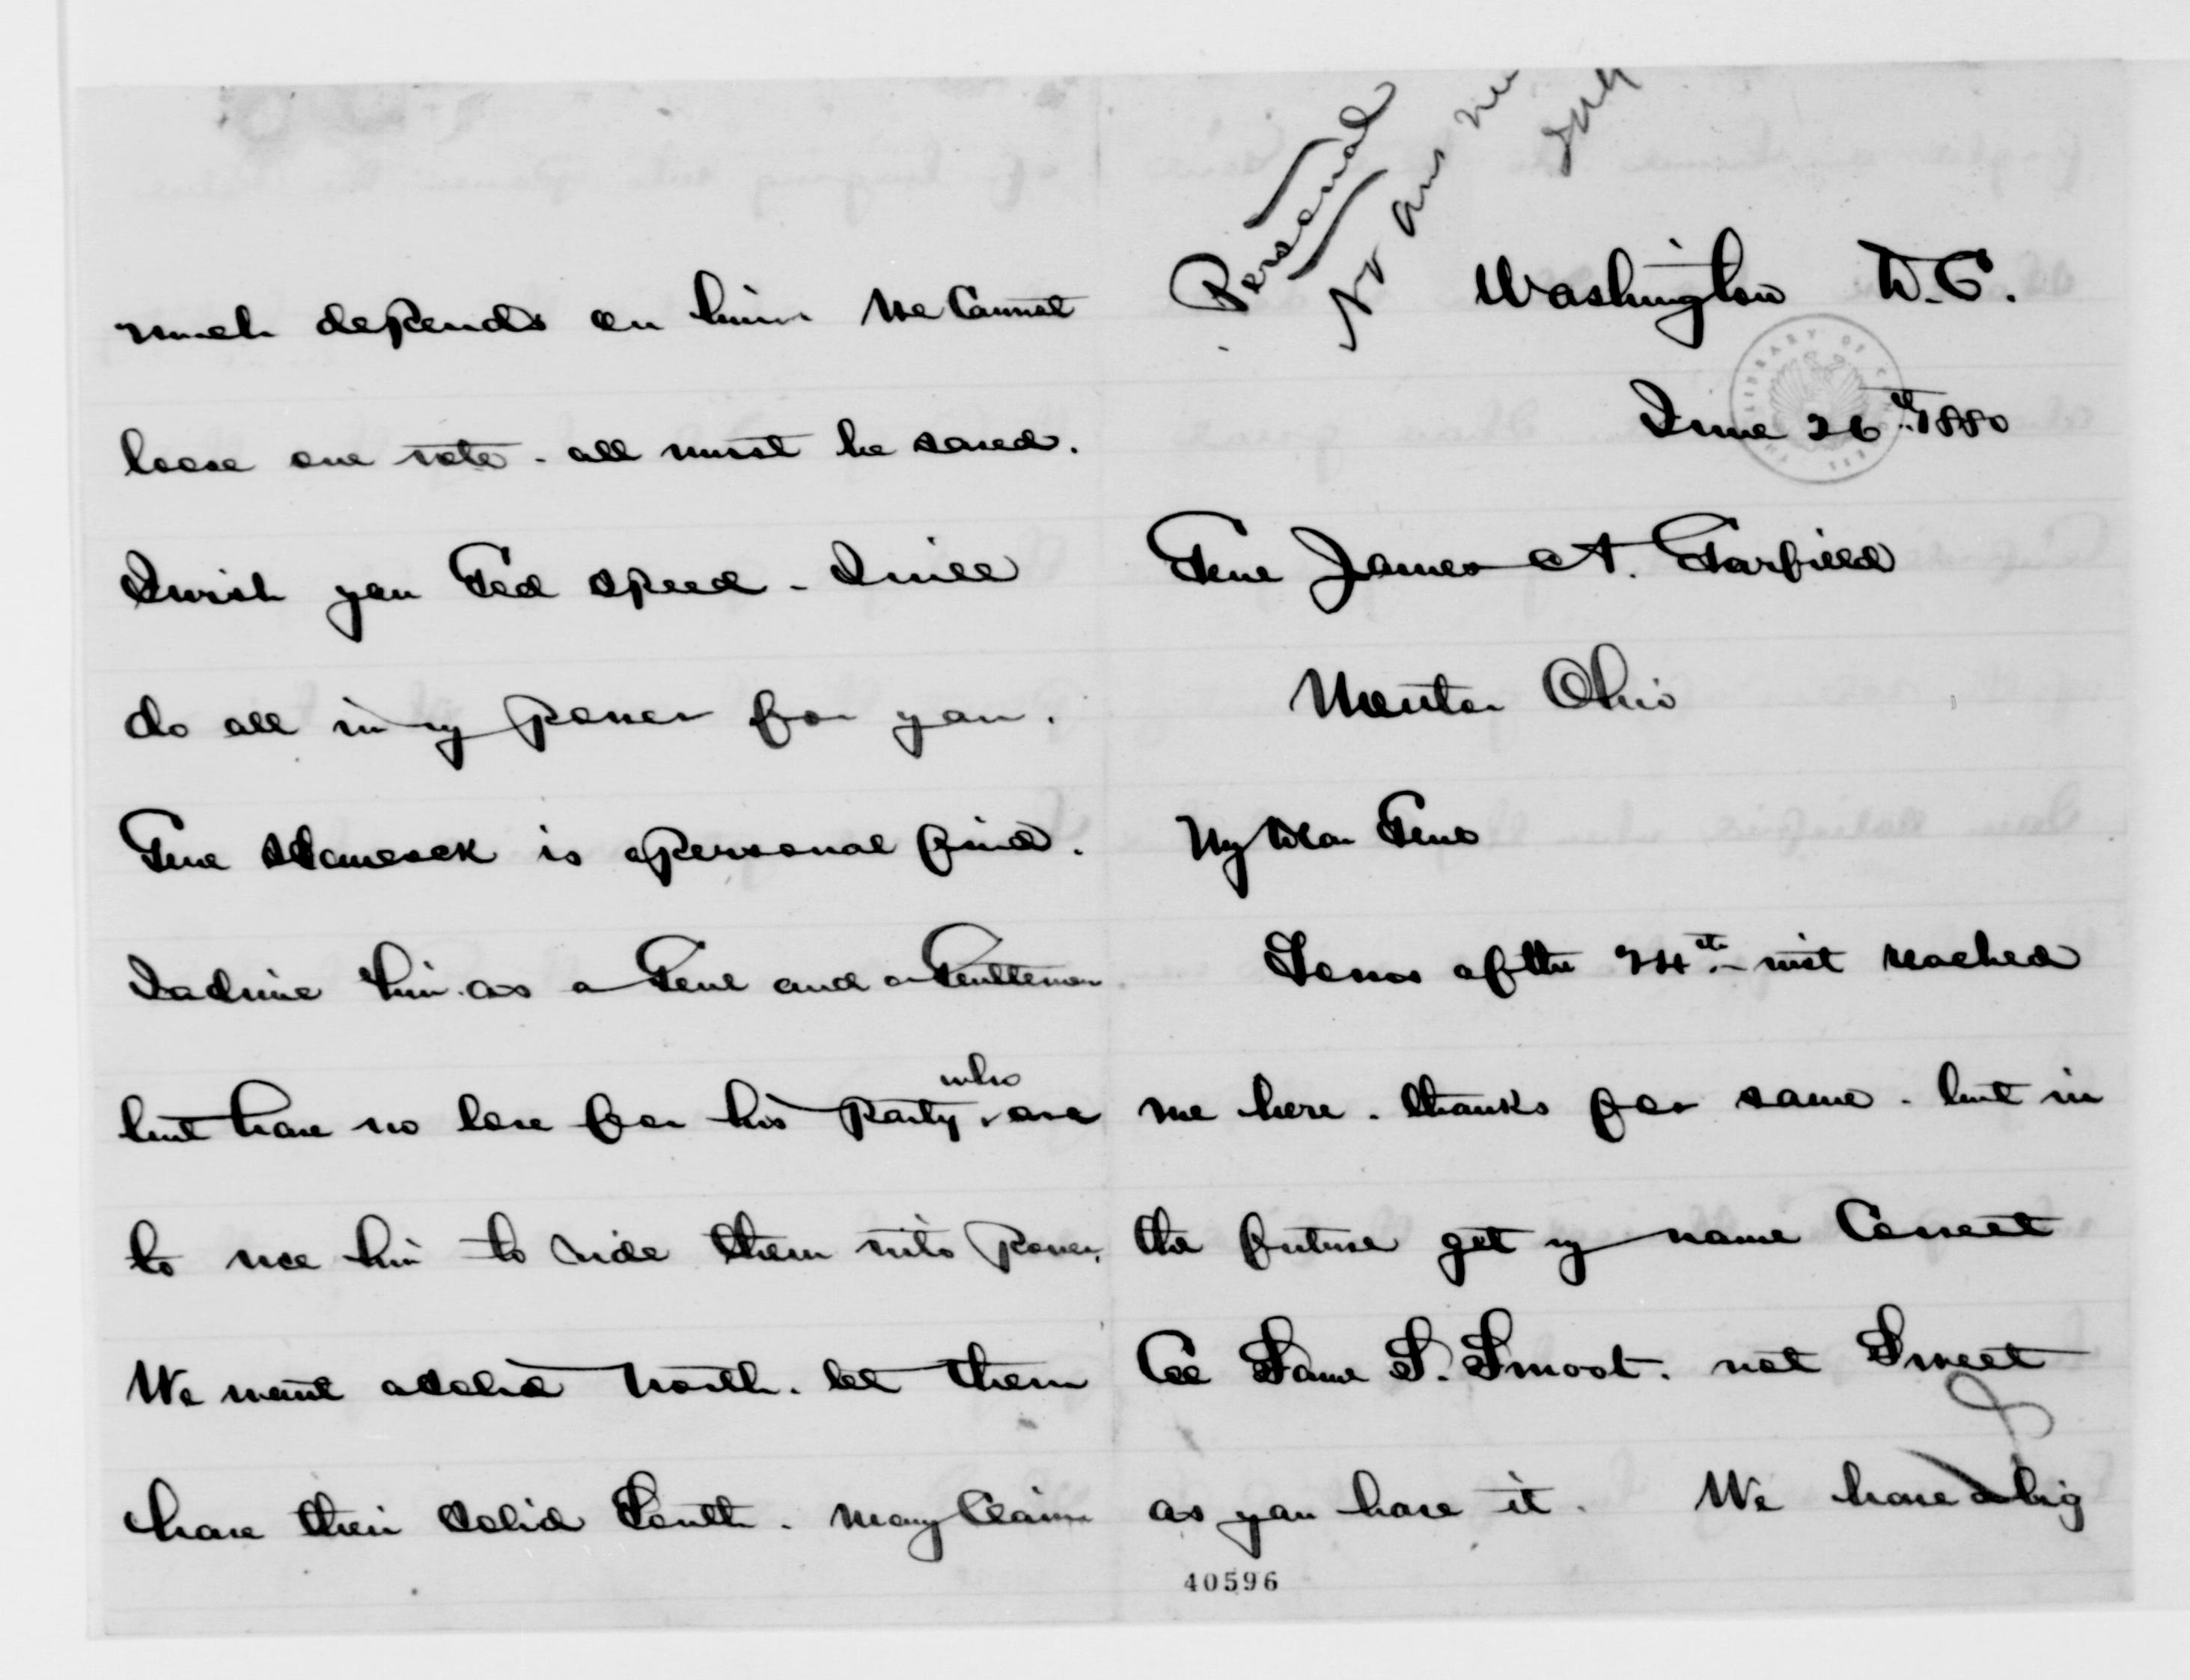 Personal
No ans
Washington D.C.
June 26th 1880
Genl James A. Garfield
Mentor Ohio
My Dear Genl
Yours of the 24th inst reached
me here. thanks for same. but in
the future get my name Correct
Col Saml S. Smoot. not Sweet
as you have it. We have a big
40596
much depends on him We Cannot
loose one vote. all must be saved.
I wish you God speed - I will
do all in my power for you.
Genl Hancock is a personal frind.
I admire him as a Genl and a Gentleman
but have no love for his Party who are
to use him to ride them into Power.
We want a solid North. let them
have their solid South. many Claim
LIBRARY OF CONGRESS